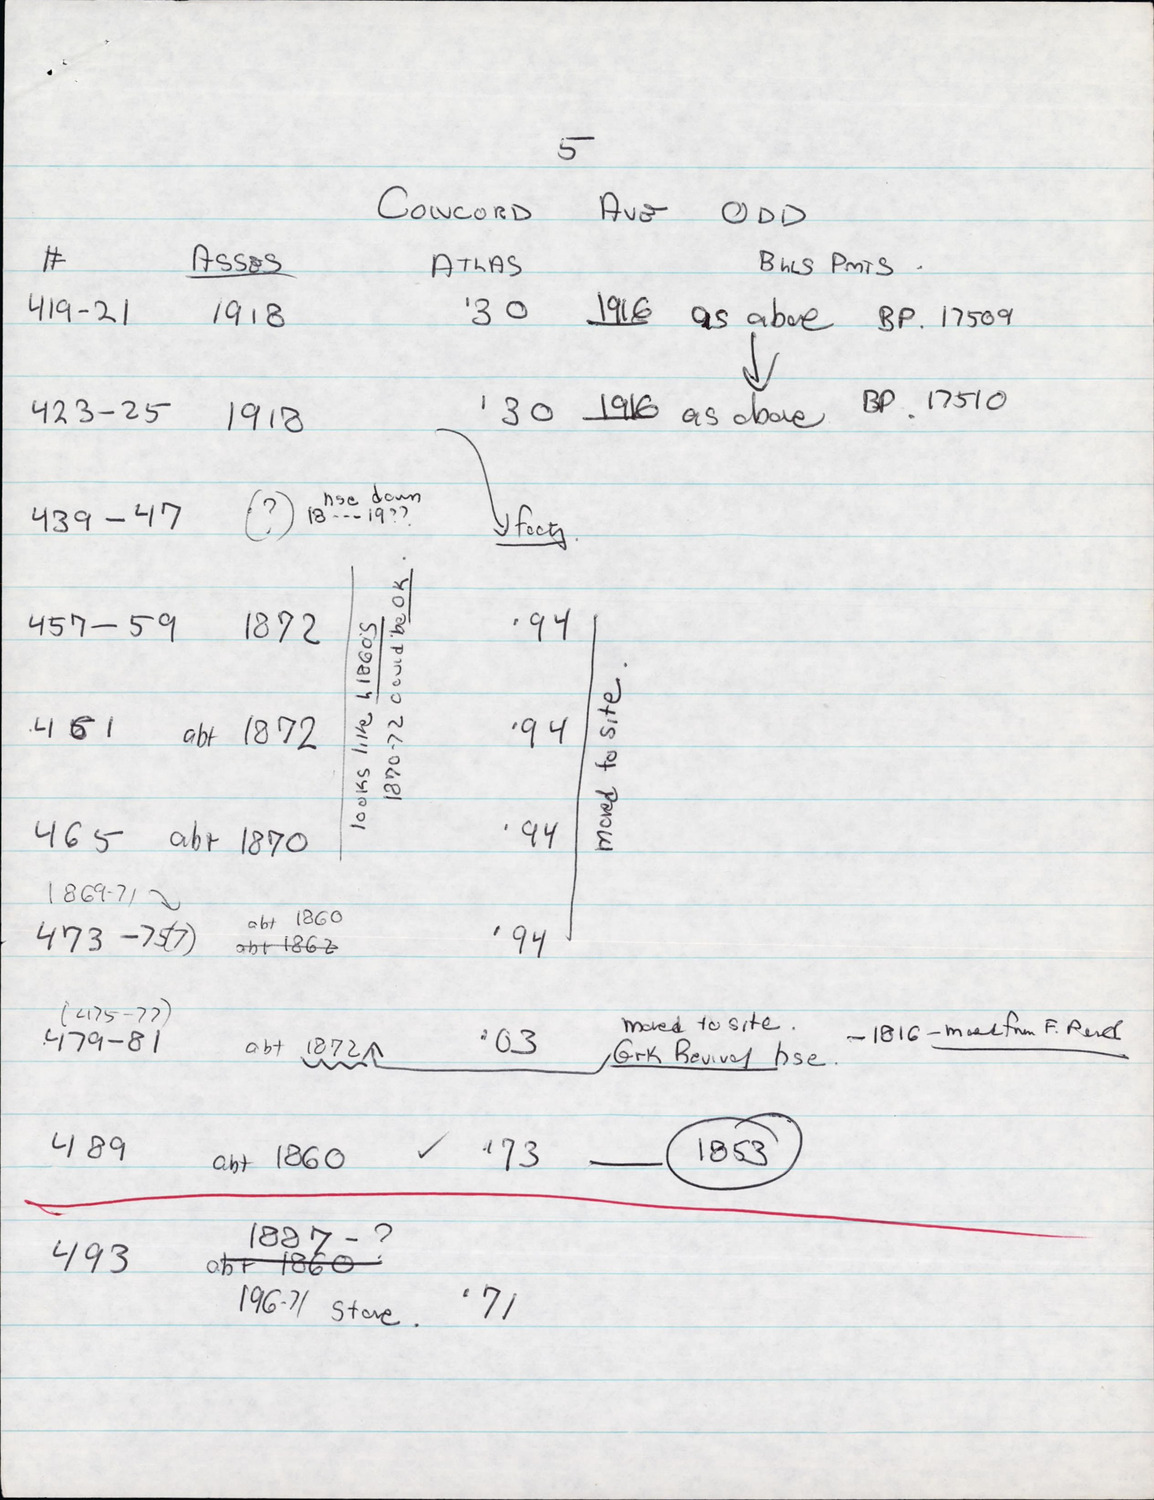 5
CONCORD AVE ODD
# ASSES ATLAS BLLS PMTS.
419-21 1918 '30 1916 as above BP. 17509
423-25 1918 '30 1916 as above BP. 17510
439-47 (?) hse down
18---19?? facty.
457-59 1872 '94
461 abt 1872 '94
465 abt 1870 '94
looks like 1860'S
1870-72 could be OK.
moved to site.
1869-71
473-75(7) abt 1860 '94
abt 1862
(475-77)
479-81 abt 1872 '03 moved to site. -1816- moved from F. Pond
Grk Revival hse.
489 abt 1860 ✓ '73 — 1853
493 1887-?
abt 1860
store. '71